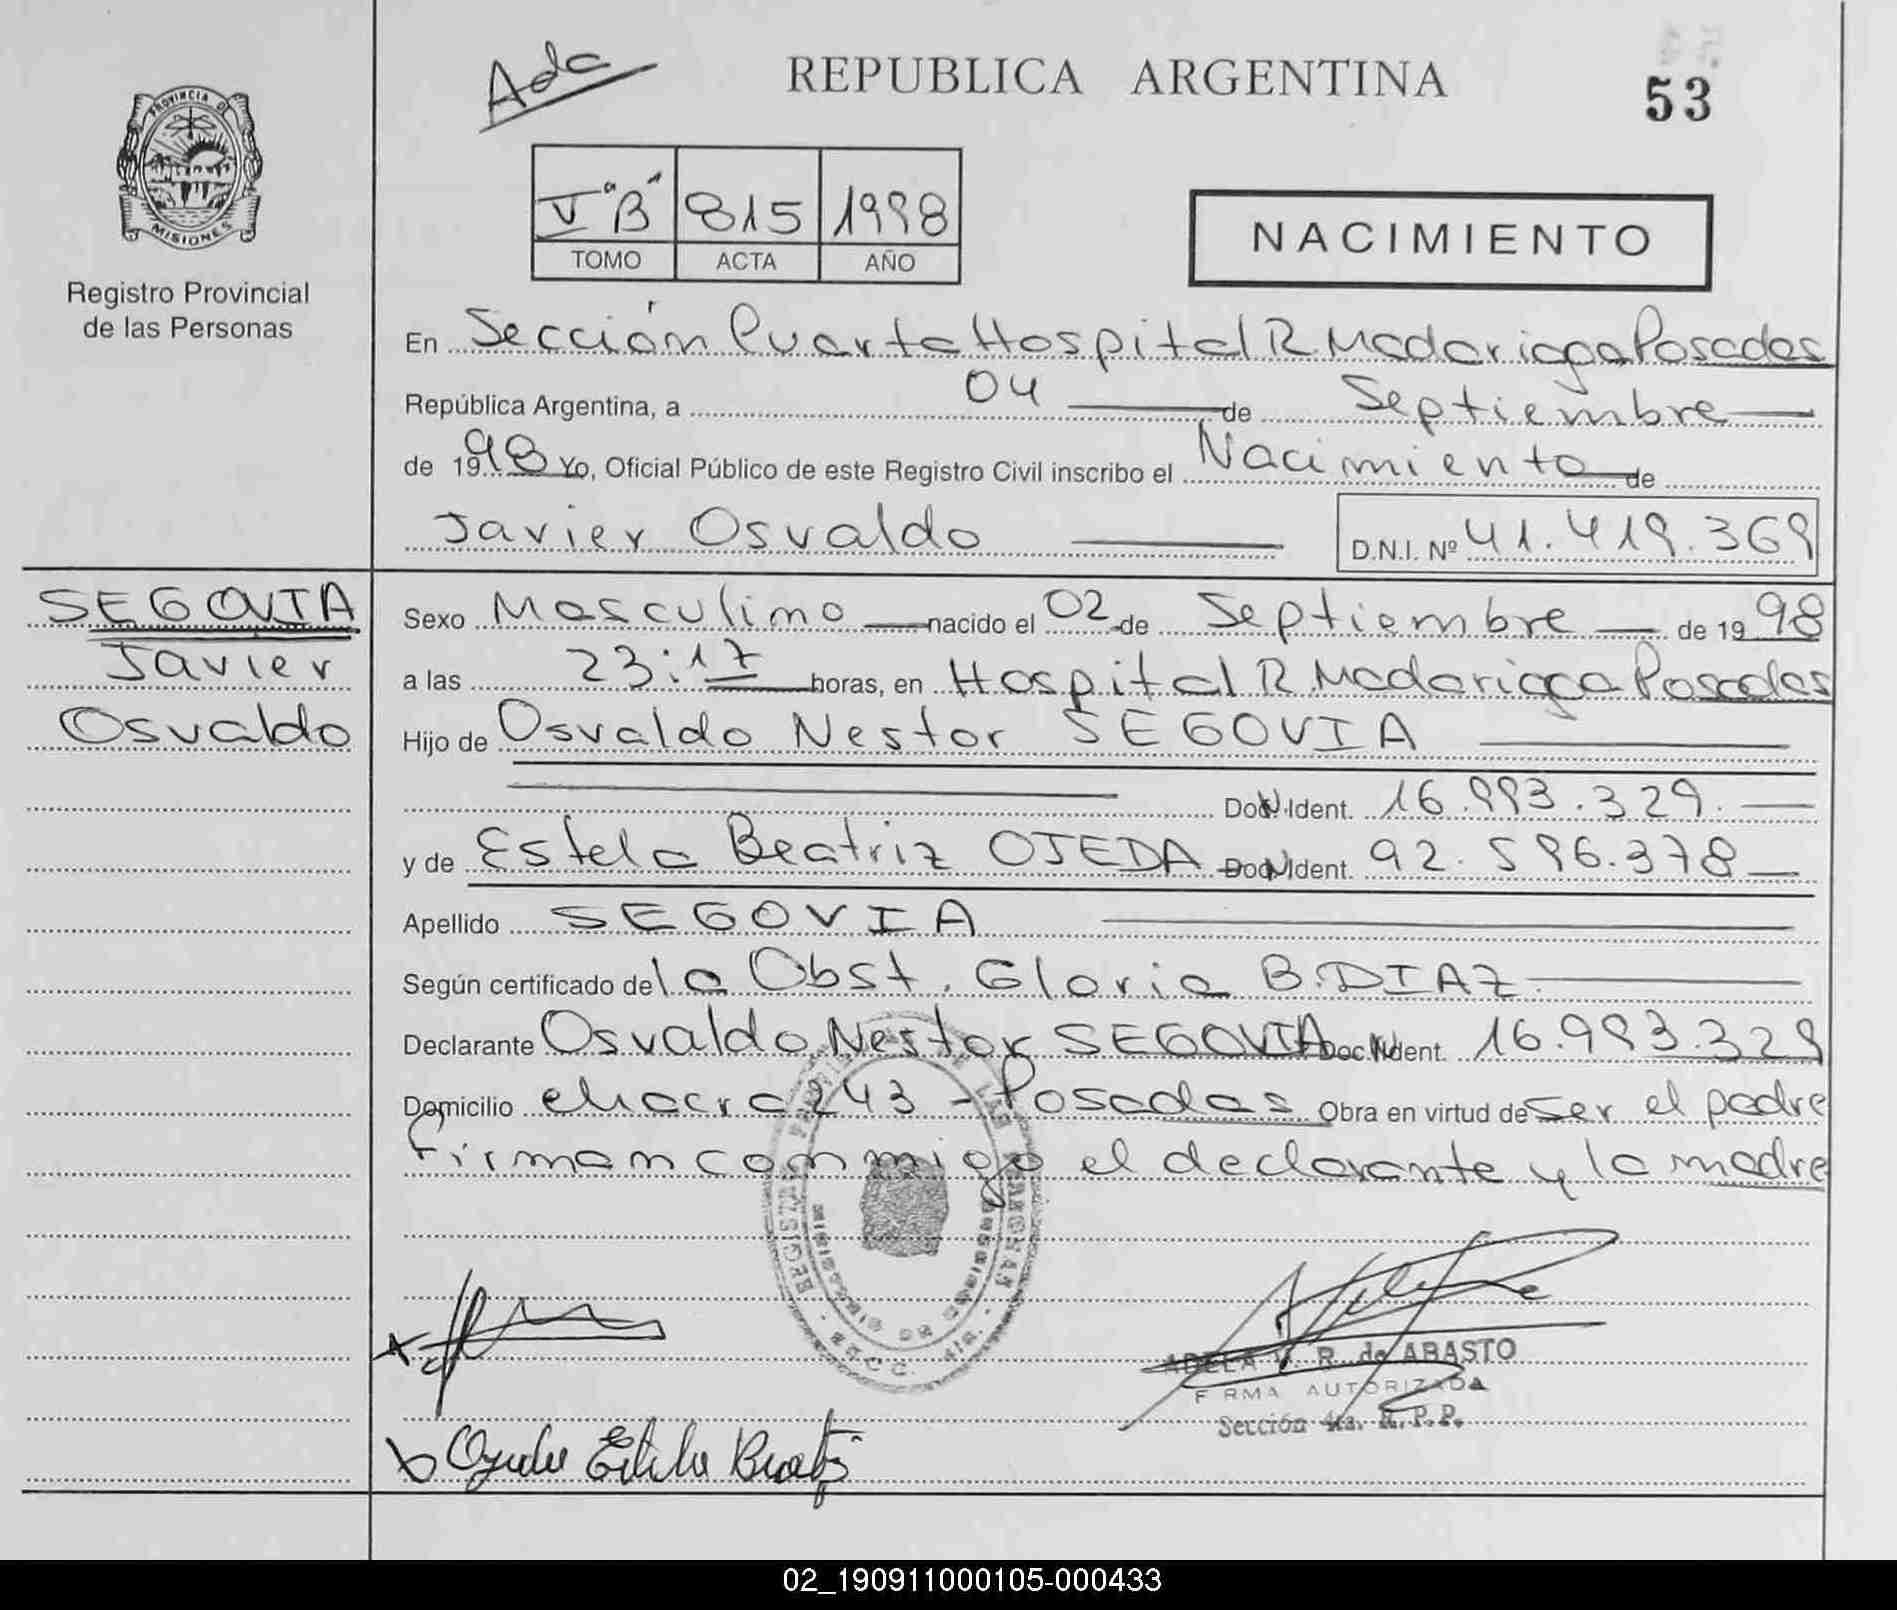 Ada
REPUBLICA ARGENTINA
53
PROVINCIA DE
MISIONES
Registro Provincial
de las Personas
Vº "B" 815 1998
TOMO ACTA AÑO
NACIMIENTO
En Sección Cuarta Hospital R Madariaga Posadas
República Argentina, a 04 de Septiembre
de 1998 Yo, Oficial Público de este Registro Civil inscribo el Nacimiento de
Javier Osvaldo D.N.I. Nº 41.419.369
SEGOVIA
Javier
Osvaldo
Sexo Masculino nacido el 02 de Septiembre de 1998
a las 23:17 horas, en Hospital R. Madariaga Posadas
Hijo de Osvaldo Nestor SEGOVIA
Doc. Ident. 16.993.329.
y de Estela Beatriz OJEDA Doc. Ident. 92.596.378
Apellido SEGOVIA
Según certificado de la Obst. Gloria B. DIAZ
Declarante Osvaldo Nestor SEGOVIA Doc. Ident. 16.993.329
Domicilio chacra 243 - Posadas Obra en virtud de ser el padre
firman conmigo el declarante y la madre
ADELA V. R. de ABASTO
FIRMA AUTORIZADA
Sección 4ta. R.P.P.
Ojeda Estela Beatriz
02_190911000105-000433